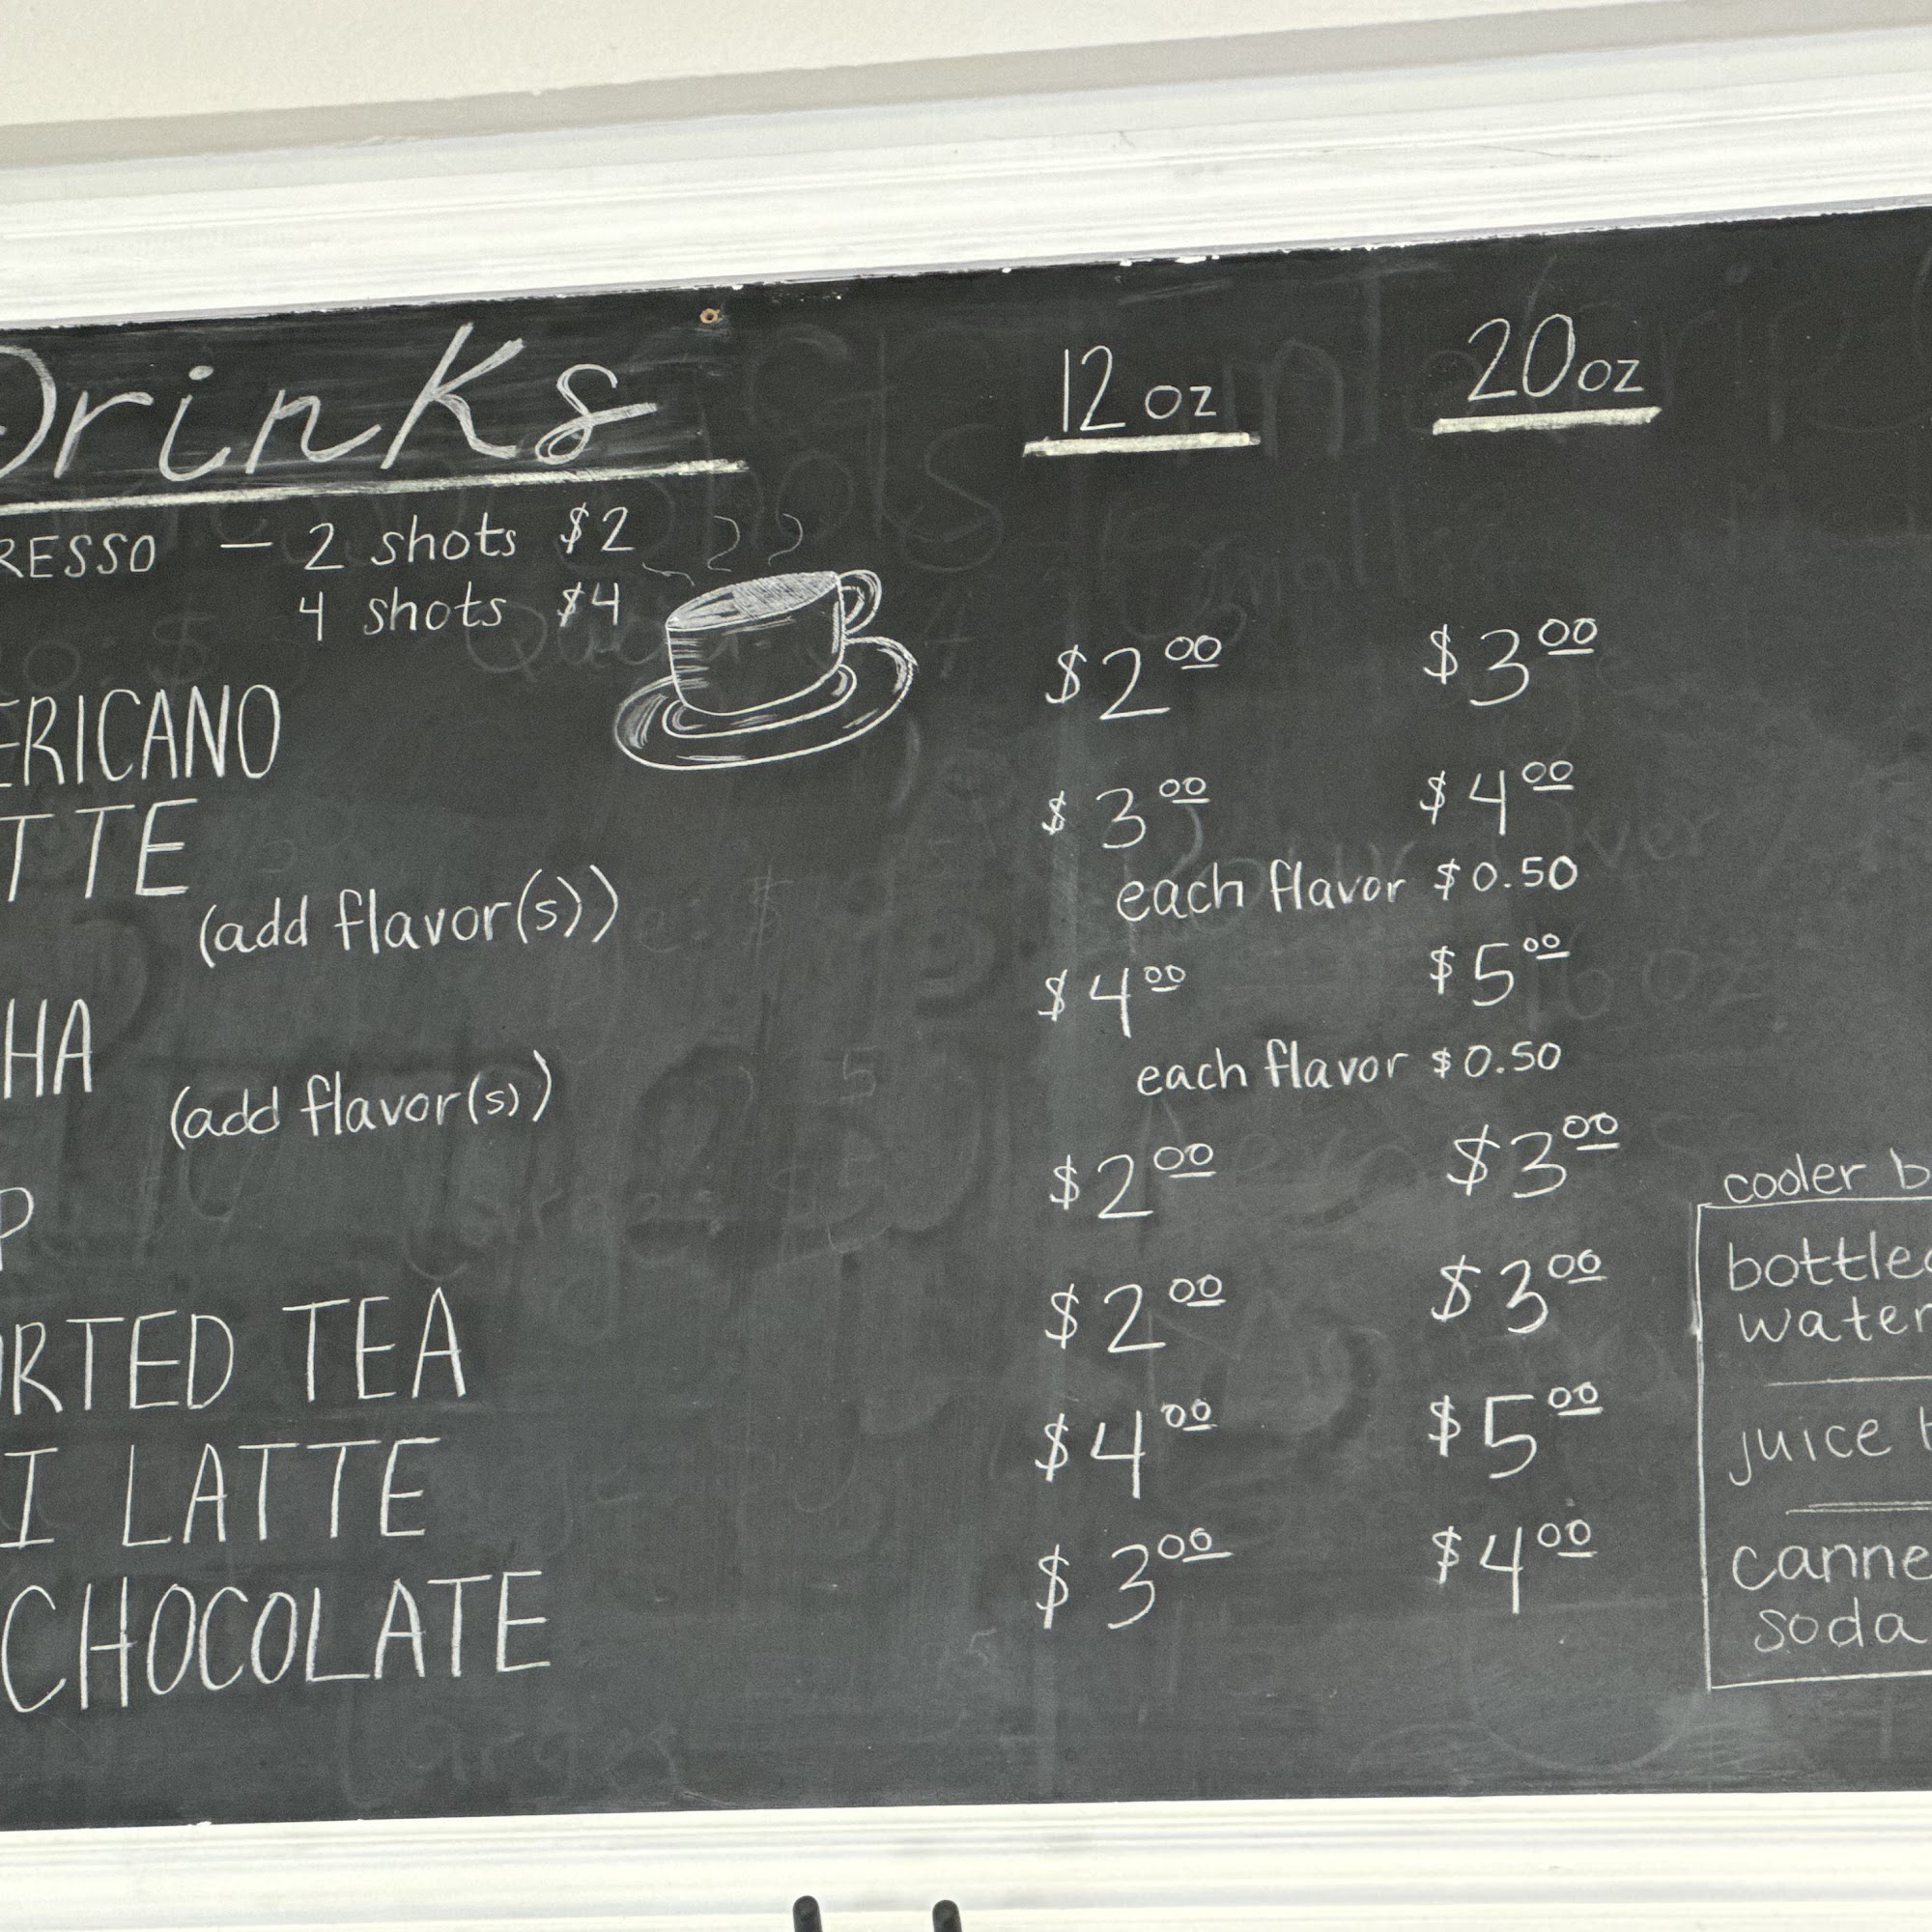 Drinks 12 oz 20 oz
RESSO — 2 shots $2
4 shots $4
ERICANO $2.00 $3.00
TTE $3.00 $4.00
(add flavor(s)) each flavor $0.50
HA $4.00 $5.00
(add flavor(s)) each flavor $0.50
P $2.00 $3.00
RTED TEA $2.00 $3.00
I LATTE $4.00 $5.00
CHOCOLATE $3.00 $4.00
cooler b
bottled
water
juice b
canne
soda